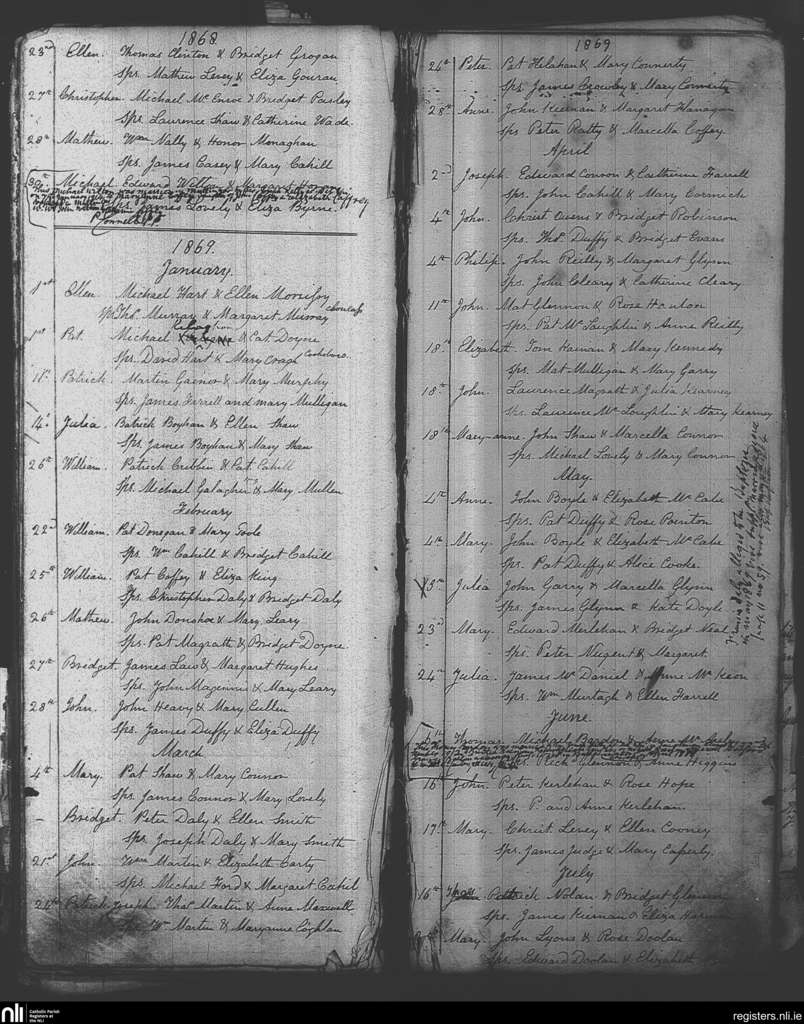 1868
23rd Ellen Thomas Clinton & Bridget Grogan
Sps. Mathew Levey & Eliza Gouran
27th Christopher Michael McEnroe & Bridget Parsley
Sps. Laurence Shaw & Catherine Wade
28th Mathew Wm Nally & Honor Monaghan
Sps. James Casey & Mary Cahill
30th Michael Edward
Sps. James Lovely & Eliza Byrne
1869.
January.
1st Ellen Michael Hart & Ellen
Sps Thos. Murray & Margaret Murray
1st Pat. Michael & Cat Doyne
Sps. David Hart & Mary
11th Patrick Martin Gaenor & Mary Murphy
Sps. James Ferrell and Mary Mulligan
14th Julia Batrick Boyhan & Ellen Shaw
Sps. James Boyhan & Mary Shaw
26th William. Patrick Cribbin & Cat. Cahill
Sps. Michael Galaghrin & Mary Mullen
February
22nd William. Pat Donegan & Mary Toole
Sps Wm Cahill & Bridget Cahill
25th William. Pat Coffey & Eliza King
Sps. Christopher Daly & Bridget Daly
26th Mathew. John Donohoe & Mary Leary
Sps. Pat Magrath & Bridget Doyne
27th Bridget James Law & Margaret Hughes
Sps. John Magennis & Mary Leary
28th John. John Heavy & Mary Cullen
Sps. James Duffy & Eliza Duffy
March
4th Mary. Pat Shaw & Mary Connor
Sps. James Connor & Mary Lovely
- Bridget. Peter Daly & Ellen Smith
Sps Joseph Daly & Mary Smith
21st John Wm Martin & Elizabeth Carty
Sps. Michael Ford & Margaret Cahil
Patrick Joseph Thos Martin & Anne Maxwell
Sps. Wm Martin & Maryanne Coghlan
1869
24th Peter. Pat Helahan & Mary Connerty
Sps. James Crowley & Mary Connerty
28th Anne. John Keenan & Margaret Flanagan
Sps Peter Ratty & Marcella Coffey
April
2nd Joseph Edward Connon & Catherine Farrell
Sps. John Cahill & Mary Cormick
4th John. Christ Owens & Bridget Robinson
Sps. Thos. Duffy & Bridget Evans
4th Philip. John Reilly & Margaret Glynn
Sps. John Cleary & Catherine Cleary
11th John. Mat Glennon & Rose Hanlon
Sps. Pat McLaughlin & Anne Reilly
18th Elizabeth. Tom Keenan & Mary Kennedy
Sps. Mat Mulligan & Mary Garry
18th John. Laurence Magrath & Julia Kearney
Sps. Laurence McLoughlin & Mary Kearney
18th Mary-anne. John Shaw & Marcella Connor
Sps. Michael Lovely & Mary Connor
May.
4th Anne. John Boyle & Elizabeth McCabe
Sps. Pat Duffy & Rose Pointon
4th Mary. John Boyle & Elizabeth McCabe
Sps. Pat Duffy & Alice Cooke.
Julia John Garry & Marcella Glynn
Sps. James Glynn & Kate Doyle
23rd Mary. Edward Merlehan & Bridget Neal
Sps. Peter Nugent & Margaret
24th Julia. James McDaniel & Anne McKeon
Sps. Wm Murtagh & Ellen Farrell
June
Thomas Michael Bardon & Anne
Sps. Rich Glennon & Anne Higgins
16th John. Peter Kerlehan & Rose Hope
Sps. P. and Anne Kerlehan
17th Mary. Christ. Levey & Ellen Cooney
Sps. James Judge & Mary Caperly
July
16th Patrick Nolan & Bridget
Sps. James Kiernan & Eliza
Mary. John Lyons & Rose Doolan
Sps. Edward Doolan & Elizabeth
nli
Catholic Parish
Registers at
the NLI
registers.nli.ie